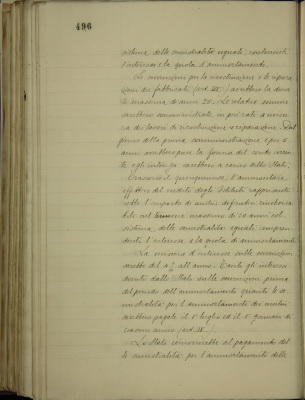 496
sistema delle annualità eguali, contenenti
l'interesse e la quota d'ammortamento.
Le convenzioni per la ricostruzione e le ripara
zioni dei fabbricati (art. III) avrebbero la dura
ta massima d'anni 20. Le relative somme
sarebbero somministrate in più rate a misu
ra dei lavori di ricostruzione e riparazione. Dal
giorno della prima somministrazione e per 5
anni avrebbe la forma del conto corren
te e gli interessi sarebbero a carico dello Stato.
Trascorso il quinquennio, l'ammontare
effettivo del credito degli Istituti rappresente
rebbe l'importo di mutui definitivi rimborsa
bili nel termine massimo di 20 anni col
sistema delle annualità eguali compren
denti l'interesse e la quota di ammortamento.
La misura d'interesse sulle convenzioni
sarebbe del 4 % all'anno. Tanto gli interessi
dovuti dallo Stato sulle convenzioni prima
del periodo dell'ammortamento quanto le an
nualità per l'ammortamento dei mutui
sarebbero pagate il 1° luglio ed il 1° gennaio di
ciascun anno (art. IV).
Lo Stato concorrerebbe al pagamento del
le annualità per l'ammortamento delle